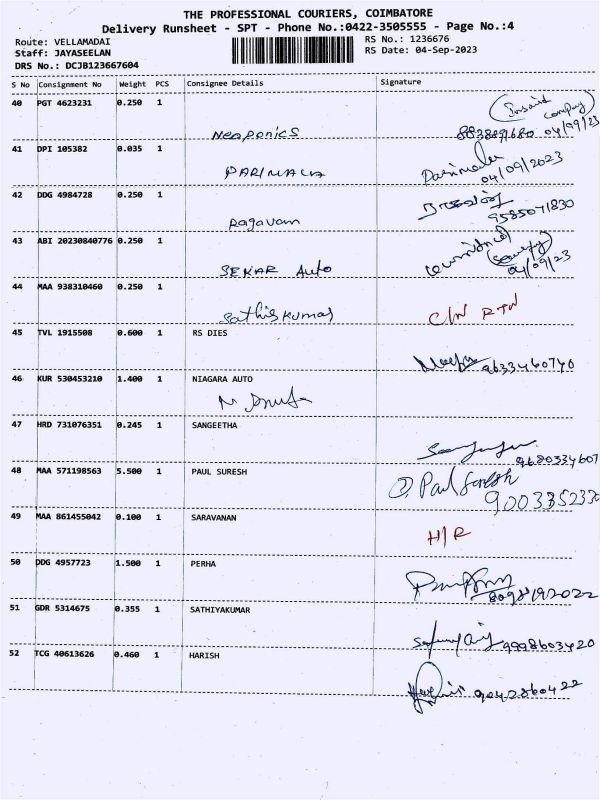 THE PROFESSIONAL COURIERS, COIMBATORE
Delivery Runsheet - SPT - Phone No.:0422-3505555 - Page No.:4
Route: VELLAMADAI
Staff: JAYASEELAN
DRS No.: DCJB123667604
RS No.: 1236676
RS Date: 04-Sep-2023
S No Consignment No Weight PCS Consignee Details Signature
40 PGT 4623231 0.250 1
Neoponics 04/09/23
41 DPI 105382 0.035 1
PARIMALA
04/09/2023
42 DDG 4984728 0.250 1
Ragavam 9585071830
43 ABI 20230840776 0.250 1
SEKAR Auto 04/09/23
44 MAA 938310460 0.250 1
Sathis Kumar C/N RTN
45 TVL 1915508 0.600 1 RS DIES
9633460740
46 KUR 530453210 1.400 1 NIAGARA AUTO
47 HRD 731076351 0.245 1 SANGEETHA
9680334607
48 MAA 571198563 5.500 1 PAUL SURESH
Paul Suresh
9003352330
49 MAA 861455042 0.100 1 SARAVANAN
H/R
50 DDG 4957723 1.500 1 PERHA
8098192022
51 GDR 5314675 0.355 1 SATHIYAKUMAR
9998603420
52 TCG 40613626 0.460 1 HARISH
9042860422